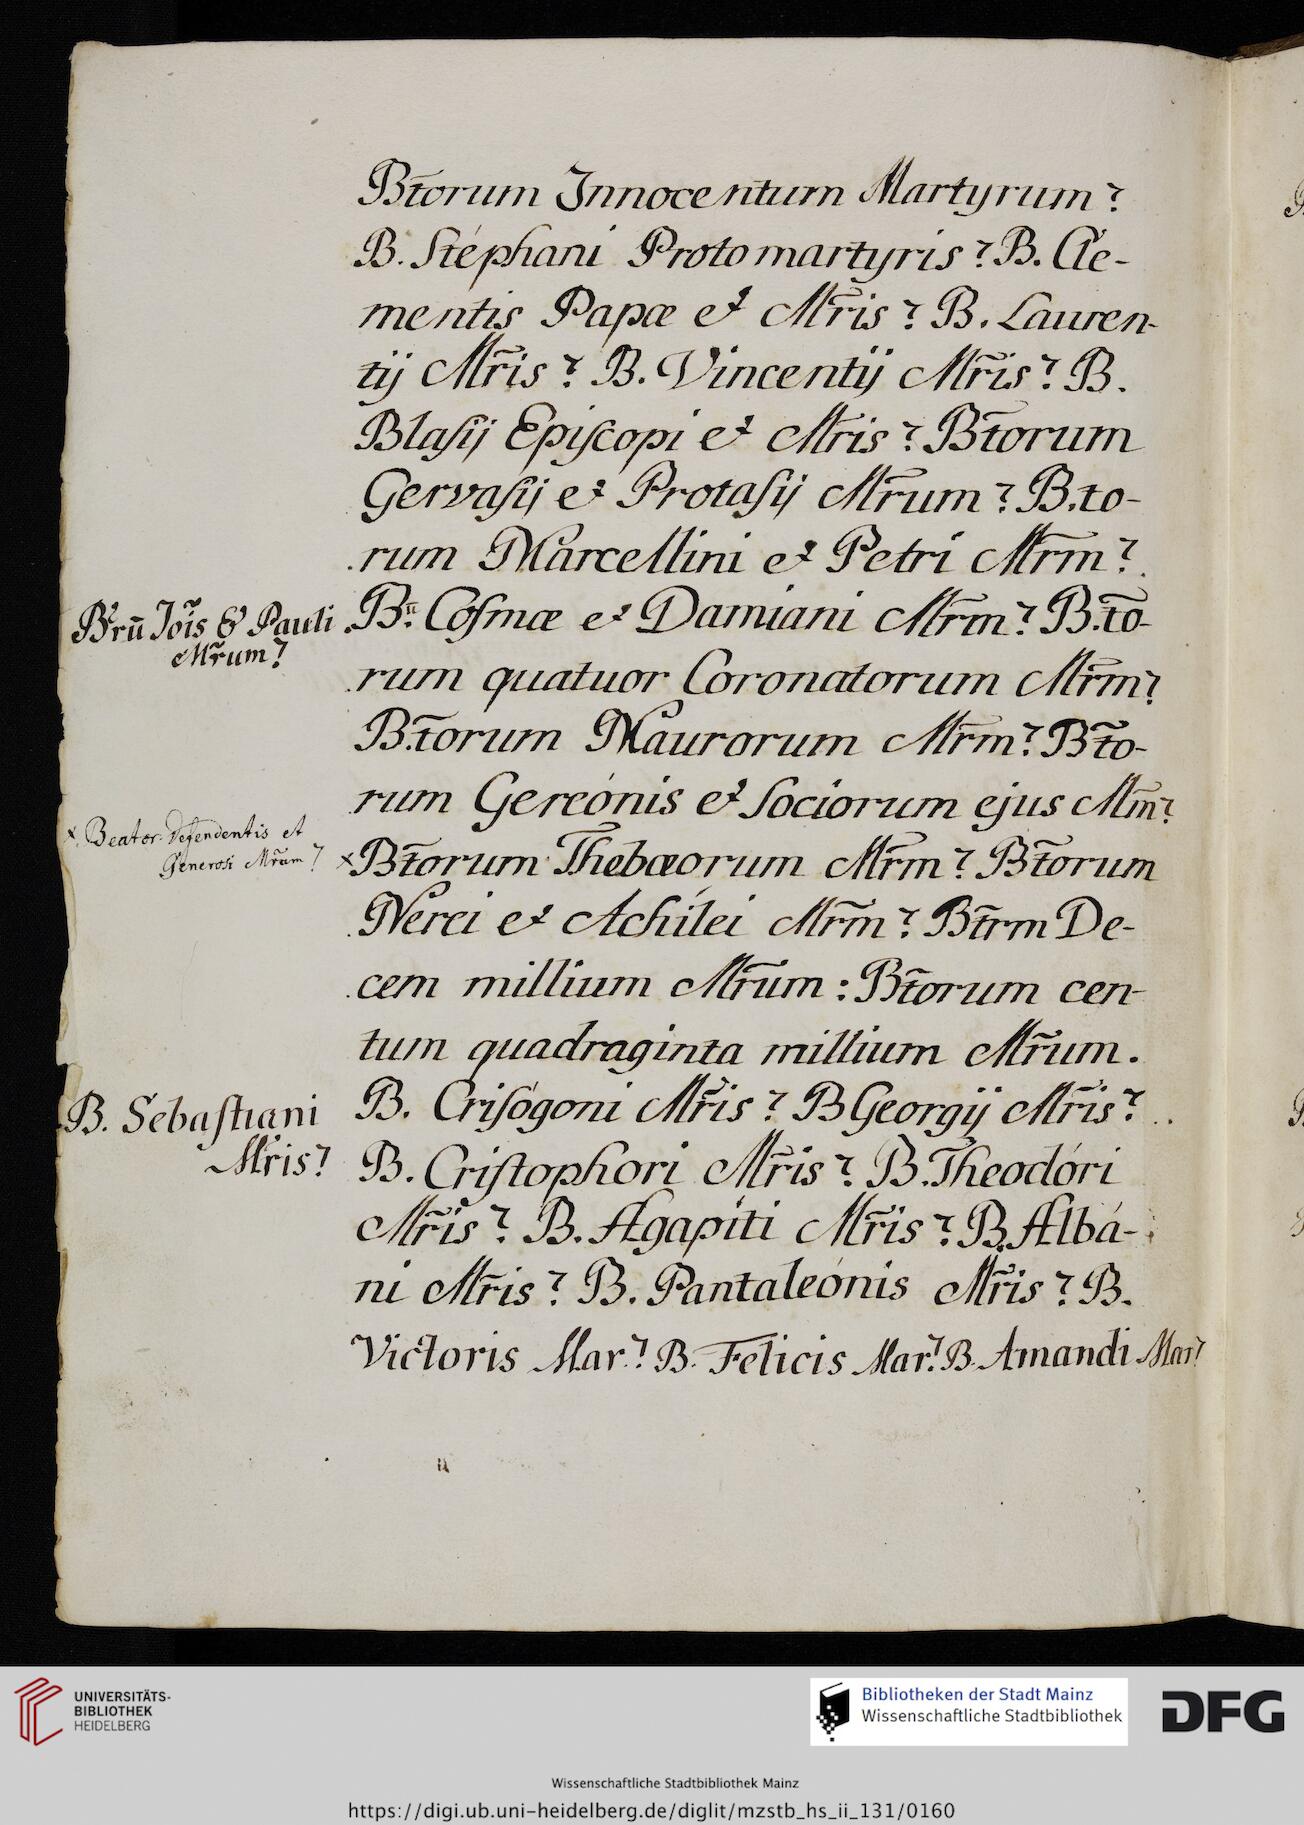 Bt̄orum Innocentum Martyrum?
B. Stéphani Protomartyris? B. Cle-
mentis Papæ et Mr̄is? B. Lauren-
tij Mr̄is? B. Vincentij Mr̄is? B.
Blaſij Epiſcopi et Mr̄is? Bt̄orum
Gervaſij et Protaſij Mr̄um? B.to-
rum Marcellini et Petri Mr̄m?
Bīi Ioīs & Pauli
Mr̄um?
B. Coſmæ et Damiani Mr̄m? B.t̄o-
rum quatuor Coronatorum Mr̄m?
B.t̄orum Maurorum Mr̄m? Bt̄o-
rum Gereónis et Sociorum ejus Mm̄?
x. Beator. Defendentis et
Generosi Mr̄um?
x Bt̄orum Thebæorum Mr̄m? Bt̄orum
Nerei et Achílei Mr̄m? Bt̄rm De-
cem millium Mr̄um: Bt̄orum cen-
tum quadraginta millium Mr̄um.
B. Sebaſtiani
Mr̄is?
B. Criſógoni Mr̄is? B Georgij Mr̄is?
B. Criſtophori Mr̄is? B. Theodóri
Mr̄is? B. Agapíti Mr̄is? B. Albá-
ni Mr̄is? B. Pantaleónis Mr̄is? B.
Victoris Mar? B. Felicis Mar? B. Amandi Mar?
UNIVERSITÄTS-
BIBLIOTHEK
HEIDELBERG
Bibliotheken der Stadt Mainz
Wissenschaftliche Stadtbibliothek
DFG
Wissenschaftliche Stadtbibliothek Mainz
https://digi.ub.uni-heidelberg.de/diglit/mzstb_hs_ii_131/0160